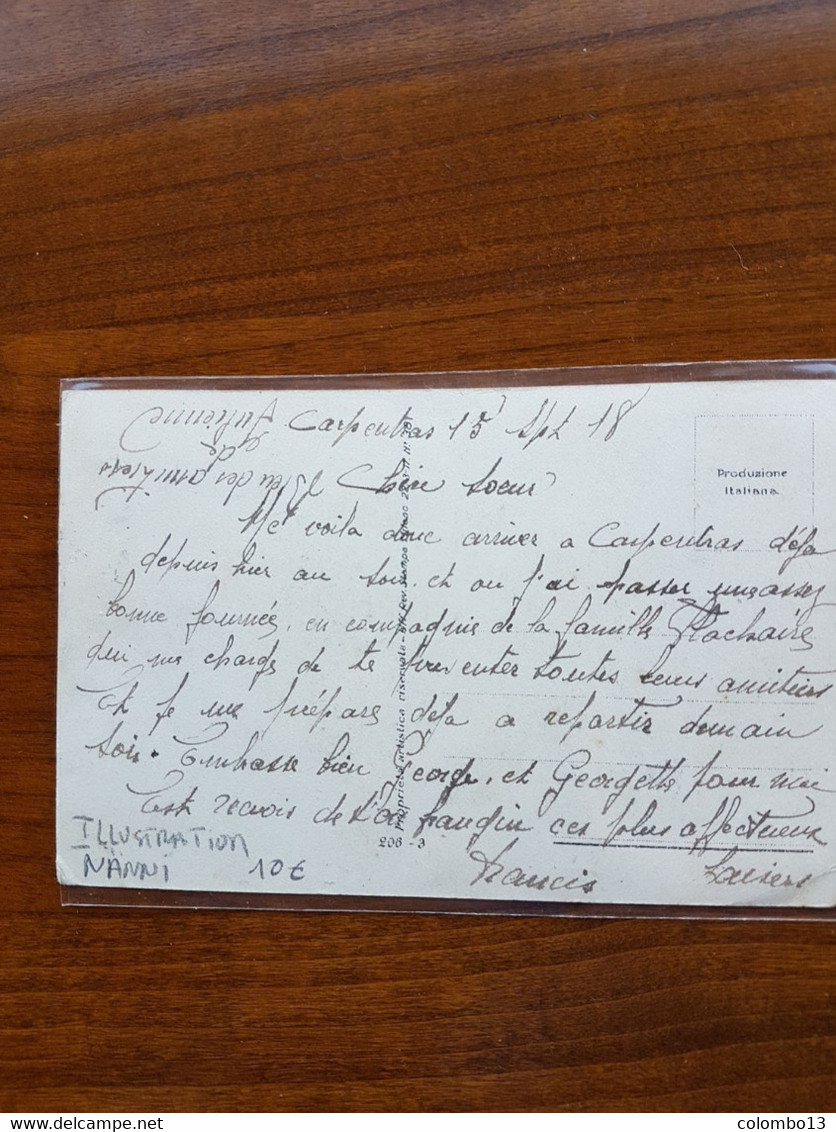 Carpentras 15 Spt 18
Chère Soeur
Me voila donc arriver a Carpentras déja
depuis hier au soir et ou j'ai passer une assez
bonne journée, en compagnie de la famille
qui me charge de te toutes leurs amitiers
Et je me prépare déja a repartir demain
soir. Embrasse bien George, et Georgette pour moi
Est recois de frangin ces plus affectueux
Francis Baisers
Julienne
de
des amitiers
Produzione
Italiana
Proprietà artistica riservata
206 - 3
ILLUSTRATION
NANNI 10€
delcampe.net
colombo13